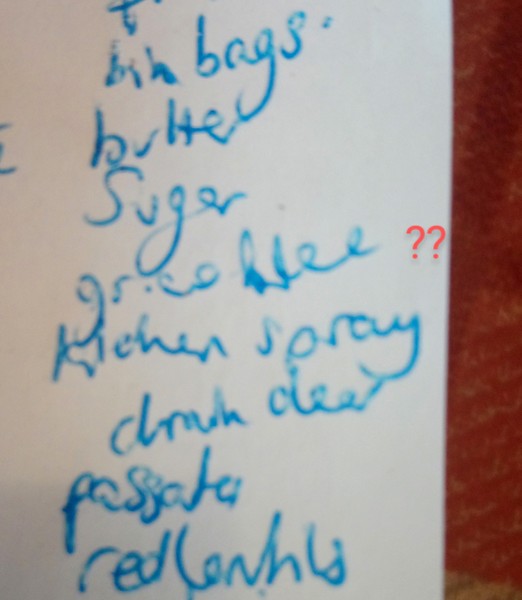 bin bags.
butter
Suger
??
Kichen spray
drain clear
passata
red lentils